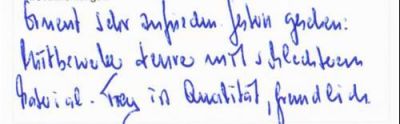 Erneut sehr zufrieden gestern gesehen:
Mitbewerber teurer mit schlechterem
Material. Frey in Qualität, freundlich